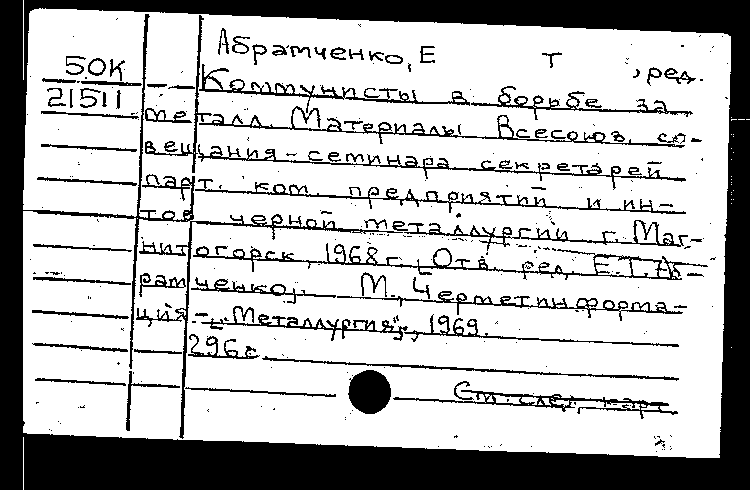 Абрамченко, Е Т , ред.
50К
21511
Коммунисты в борьбе за
металл. Материалы Всесоюз. со-
вещания-семинара секретарей
парт. ком. предприятий и ин-
тов черной металлургии г. Маг-
нитогорск, 1968 г. [Отв. ред. Е.Т. Аб-
рамченко]. М., Черметинформа-
ция - [„Металлургия"], 1969.
296 с.
См. след. карт.
3.